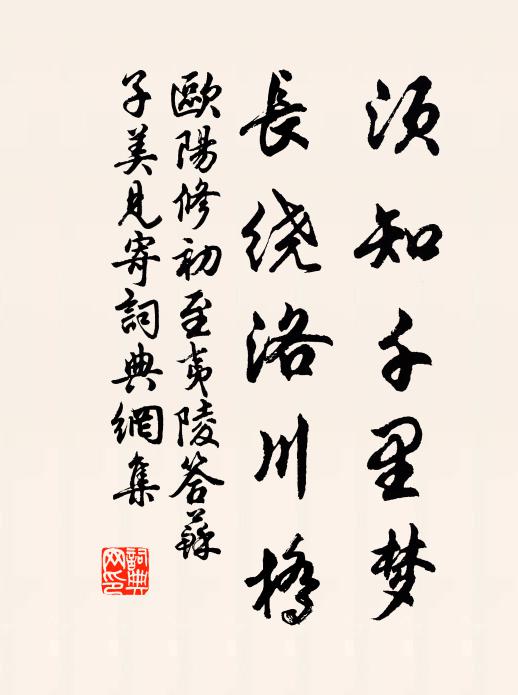 须知千里梦
長绕洛川橋
歐陽修初至夷陵答蘇
子美見寄詞典網集
詞典網印